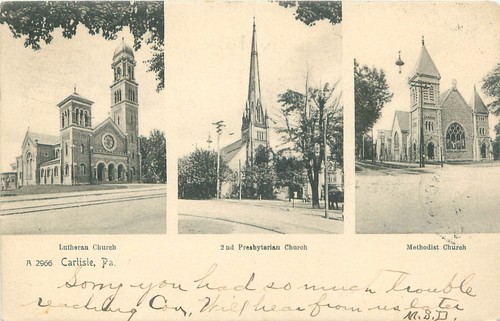 Lutheran Church
2nd Presbyterian Church
Methodist Church
A 2966 Carlisle, Pa.
Sorry you had so much trouble
reaching Cov, Will hear from us later
M.S.D.